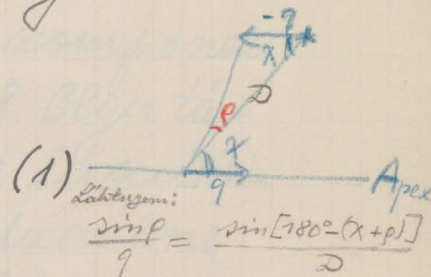 -q
χ *
ρ D
χ
(1) q Apex
Lähtugem:
sinρ/q = sin[180°-(χ+ρ)]/D